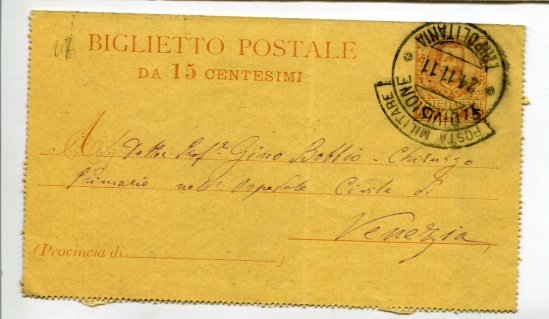 BIGLIETTO POSTALE
DA 15 CENTESIMI
POSTA MILITARE
DIVISIONE
TRIPOLITANIA
24.11.11
A Dottor Prof. Gino - Chirurgo
Primario nell' Ospedale Civile di
Venezia
(Provincia di